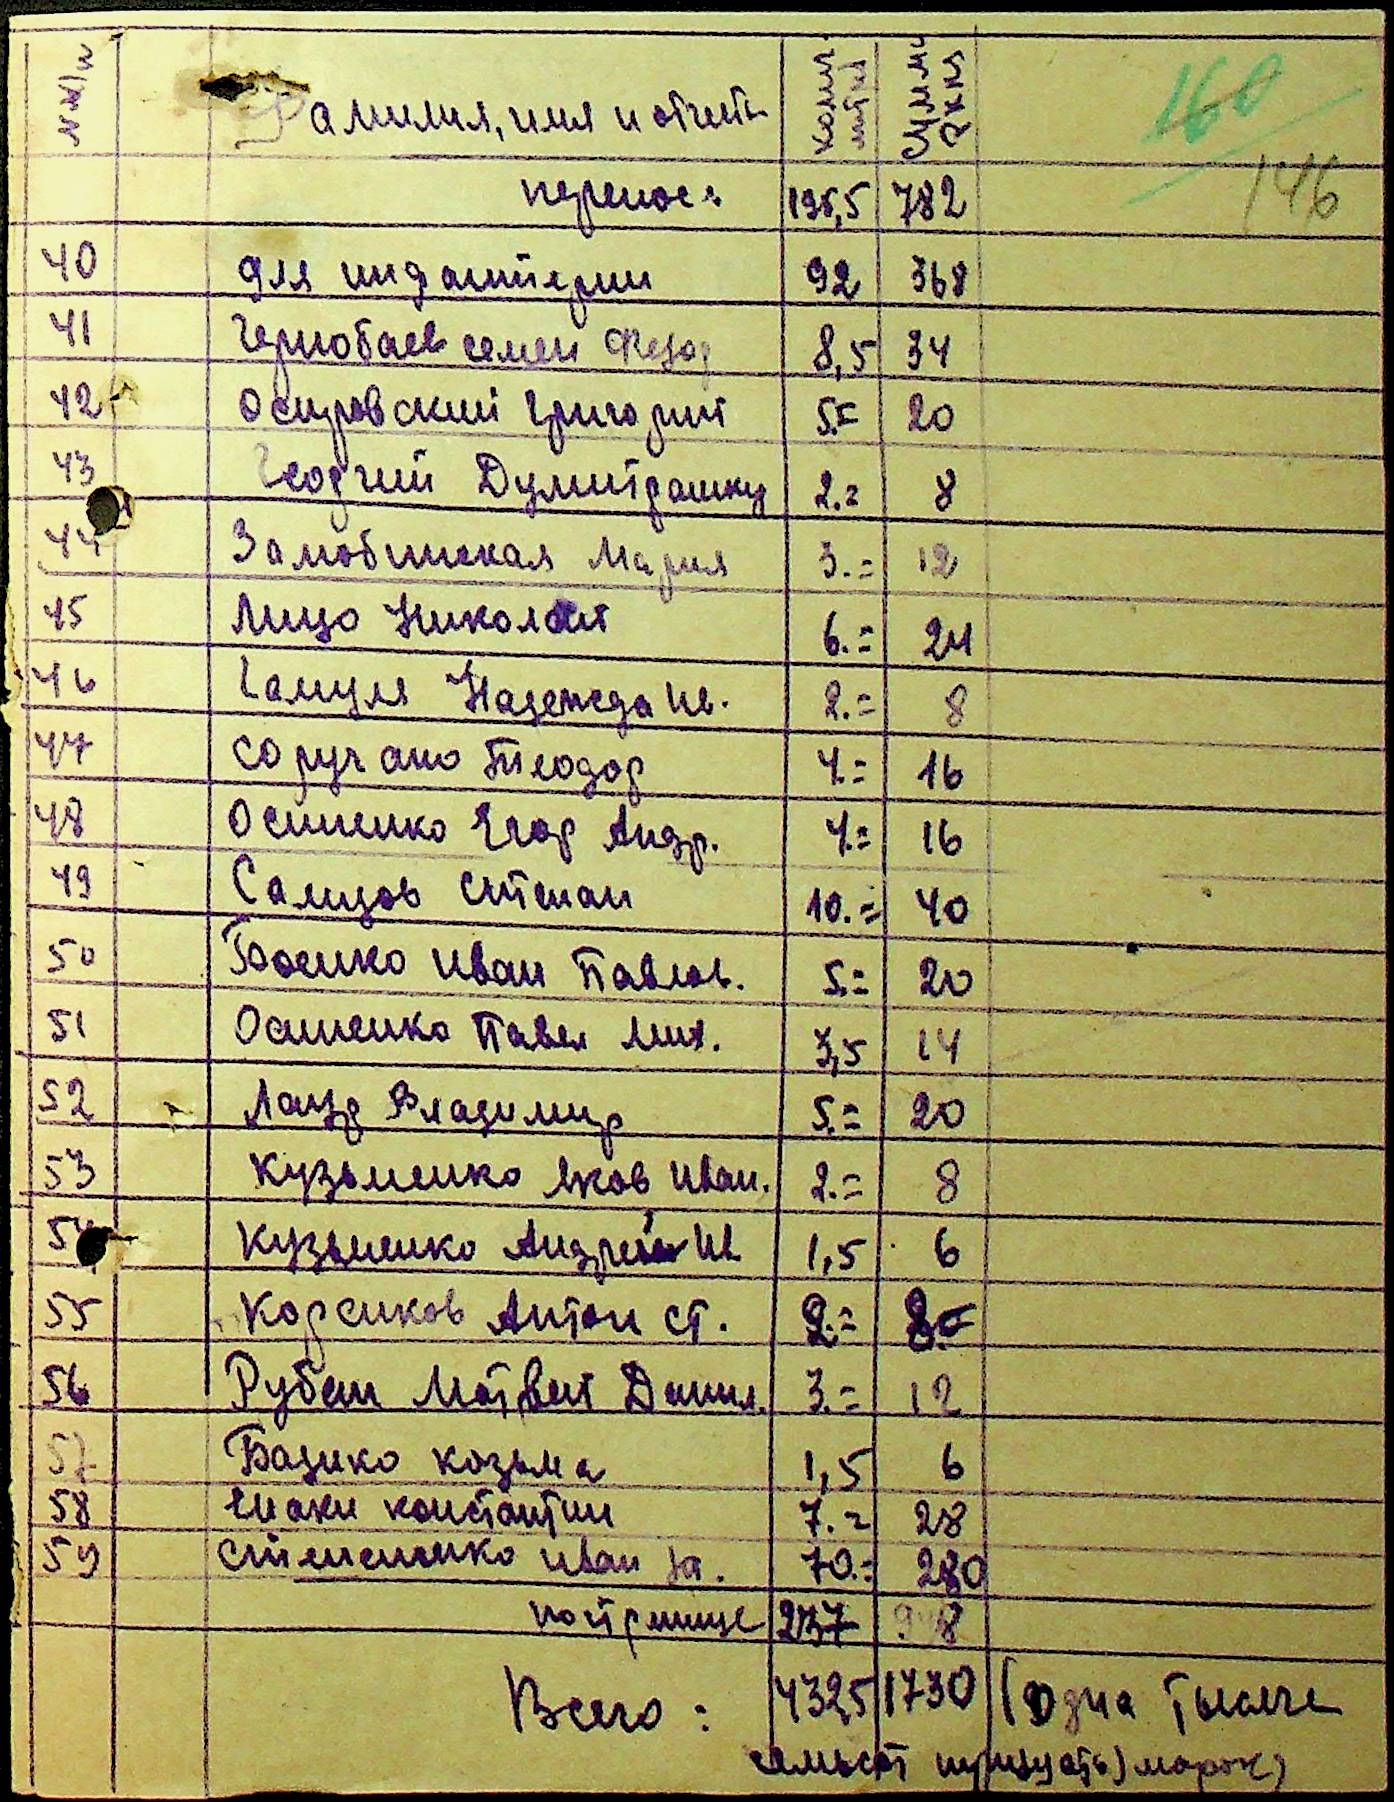 №№ п/п Фамилия, имя и отчеств Колич. лития Сумма
160
146
перенос: 195,5 782
40 для индантерии 92 368
41 Чернобаев семен Федор 8,5 34
42 Осировский Григорий 5.= 20
43 Георгий Думитрашку 2.= 8
44 Замобинская Мария 3.= 12
45 Лицо Николай 6.= 24
46 Гамуля Надежда Ив. 2.= 8
47 Соручано Теодор 4.= 16
48 Осипенко Егор Андр. 4.= 16
49 Самцов Степан 10.= 40
50 Боенко Иван Павлов. 5.= 20
51 Осипенко Павел Мих. 3,5 14
52 Лаур Владимир 5.= 20
53 Кузьменко Яков Иван. 2.= 8
54 Кузьменко Андрей Ив 1,5 6
55 Корсиков Антон Ст. 2.= 8.=
56 Рубан Матвей Данил. 3.= 12
57 Бацико козьма 1,5 6
58 константин 7.= 28
59 иван 70.= 280
по странице 237 948
Всего: 432,5 1730 (Одна тысяче
семьсот тридцать) марок)